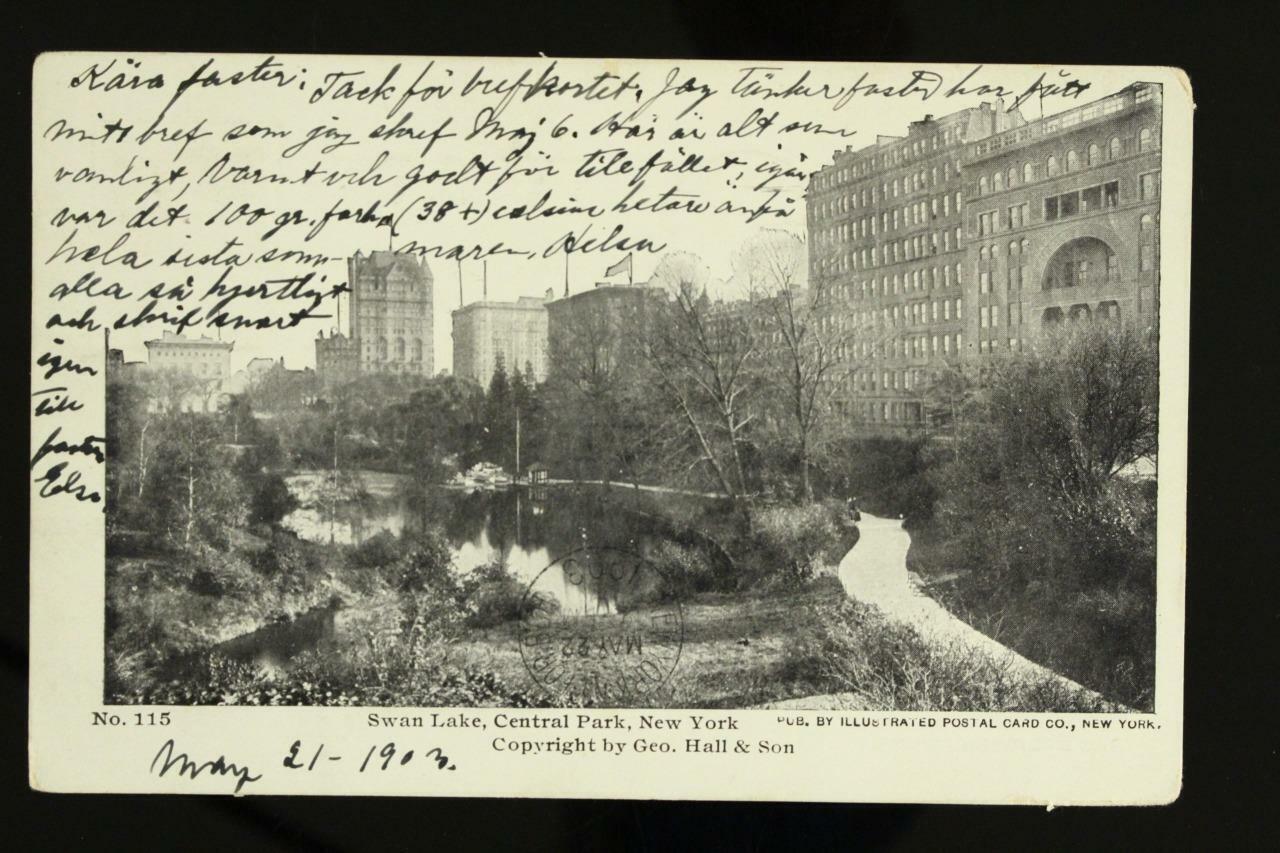 Kära faster; Tack för brefkortet. Jag tänker faster har fått
mitt bref som jag skref Maj 6. Här är alt som
vanligt, Varmt och godt för tilefället, igår
var det 100 gr. farh (38+) celsius hetare än på
hela sista som- maren, Hilsa
alla så hjertligt
och skrif snart
igen
till
faster
Elsa
No. 115
Swan Lake, Central Park, New York
PUB. BY ILLUSTRATED POSTAL CARD CO., NEW YORK.
Copyright by Geo. Hall & Son
May 21 - 1903.
1903
MAY 22